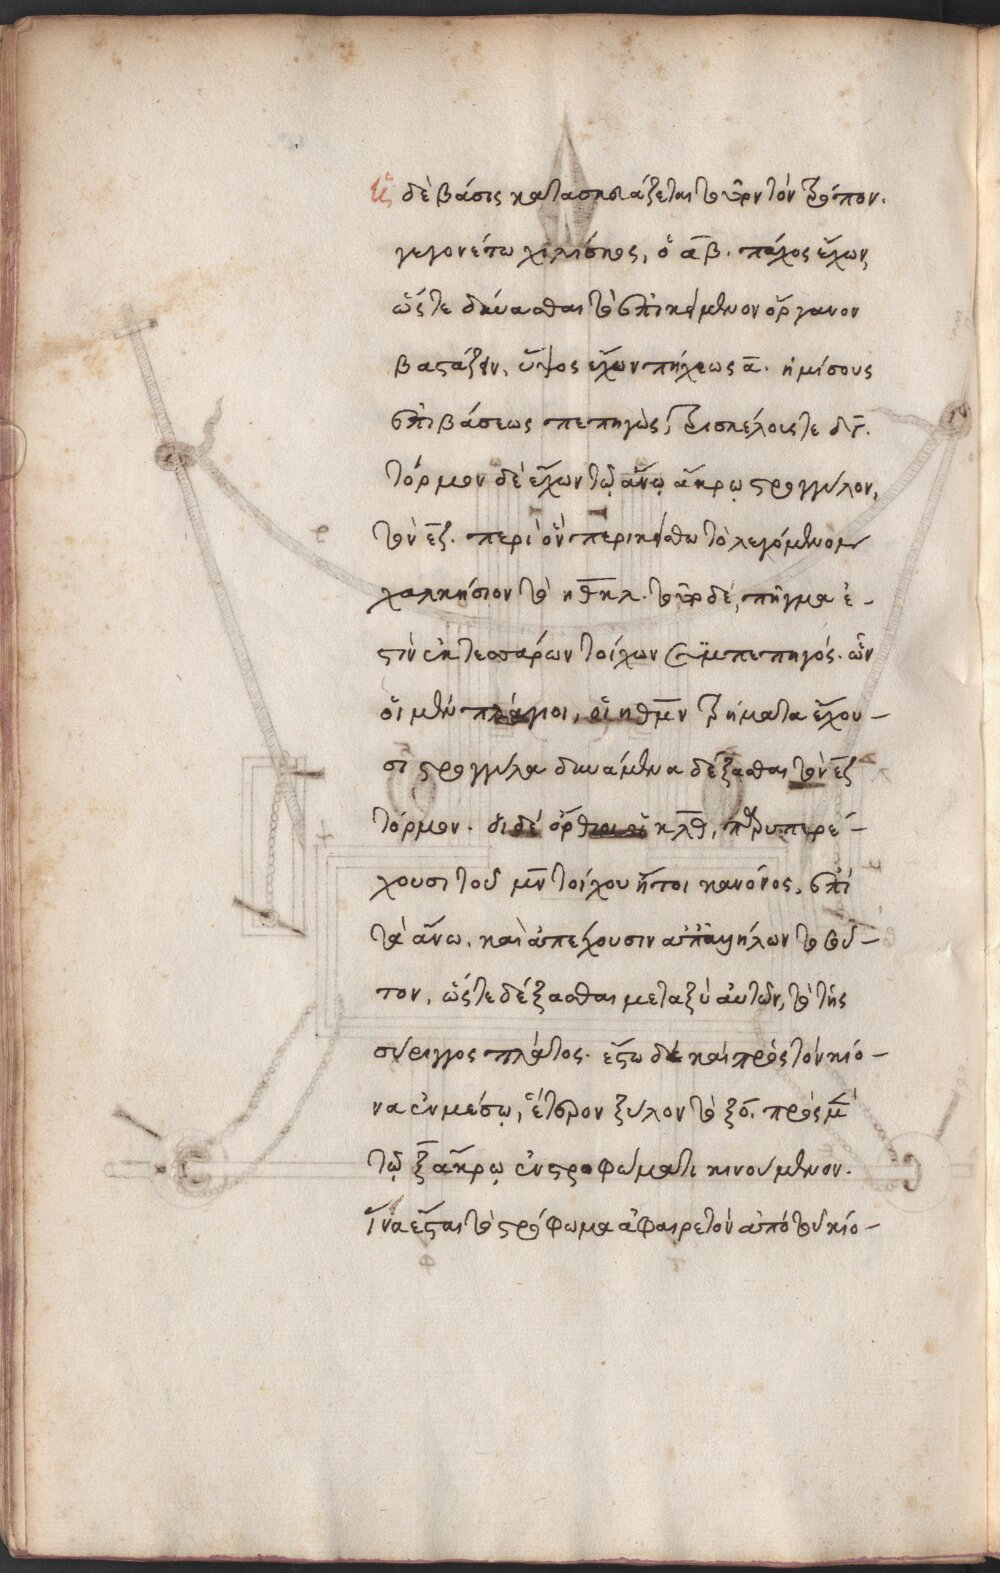 Ἡ δὲ βάσις κατασκευάζεται τοῦτον τὸν τρόπον.
γεγονέτω κιονίσκος, ὁ α̅β̅. πάχος ἔχων,
ὥστε δύνασθαι τὸ ἐπικείμενον ὄργανον
βαστάζειν, ὕψος ἔχων πήχεως α̅. ἡμίσους
ἐπὶ βάσεως πεπηγὼς, τρισκέλοις τε
τόρμον δὲ ἔχων τῷ ἄνω ἄκρῳ στρογγύλον,
τὸν ε̅ζ̅. περὶ ὃν περικείσθω τὸ λεγόμενον
καρχήσιον τὸ η̅θ̅κ̅λ̅. τοῦτο δὲ, πῆγμα ἐ-
στὶν ἐκ τεσσάρων τοίχων συμπεπηγός. ὧν
οἱ μὲν πλάγιοι, οἱ η̅θ̅μ̅ν̅ τρήματα ἔχου-
σι στρογγύλα δυνάμενα δέξασθαι τὸν ε̅ζ̅
τόρμον. οἱ δὲ ὄρθιοι οἱ κ̅λ̅θ̅, ὑπερέ-
χουσι τοῦ μ̅ν̅ τοίχου ἤτοι κανόνος, ἐπὶ
τὰ ἄνω. καὶ ἀπέχουσιν ἀπ' ἀλλήλων τοσοῦ-
τον, ὥστε δέξασθαι μεταξὺ αὐτῶν, τὸ τῆς
σύριγγος πλάτος. ἔστω δὲ καὶ πρὸς τὸν κίο-
να ἐν μέσῳ, ἕτερον ξύλον τὸ ξ̅ο̅. πρὸς μ̅ὲν
τῷ ξ̅ ἄκρῳ ἐν στροφώματι κινούμενον.
ἵνα ἔσται τὸ στρόφωμα ἀφαιρετὸν ἀπὸ τοῦ κίο-